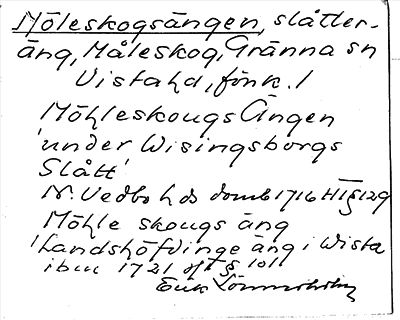 Möleskogsängen, slåtter-
äng, Måleskog, Gränna sn
Vista hd, Jönk. l
Möhleskougs Ängen
'under Wisingsborgs
Slått'
N. Vedbo hds domb 1716 HT § 129
Möhle skougs äng
'Landshöfdinge äng i Wista
ibm 1721 § 101
Erik